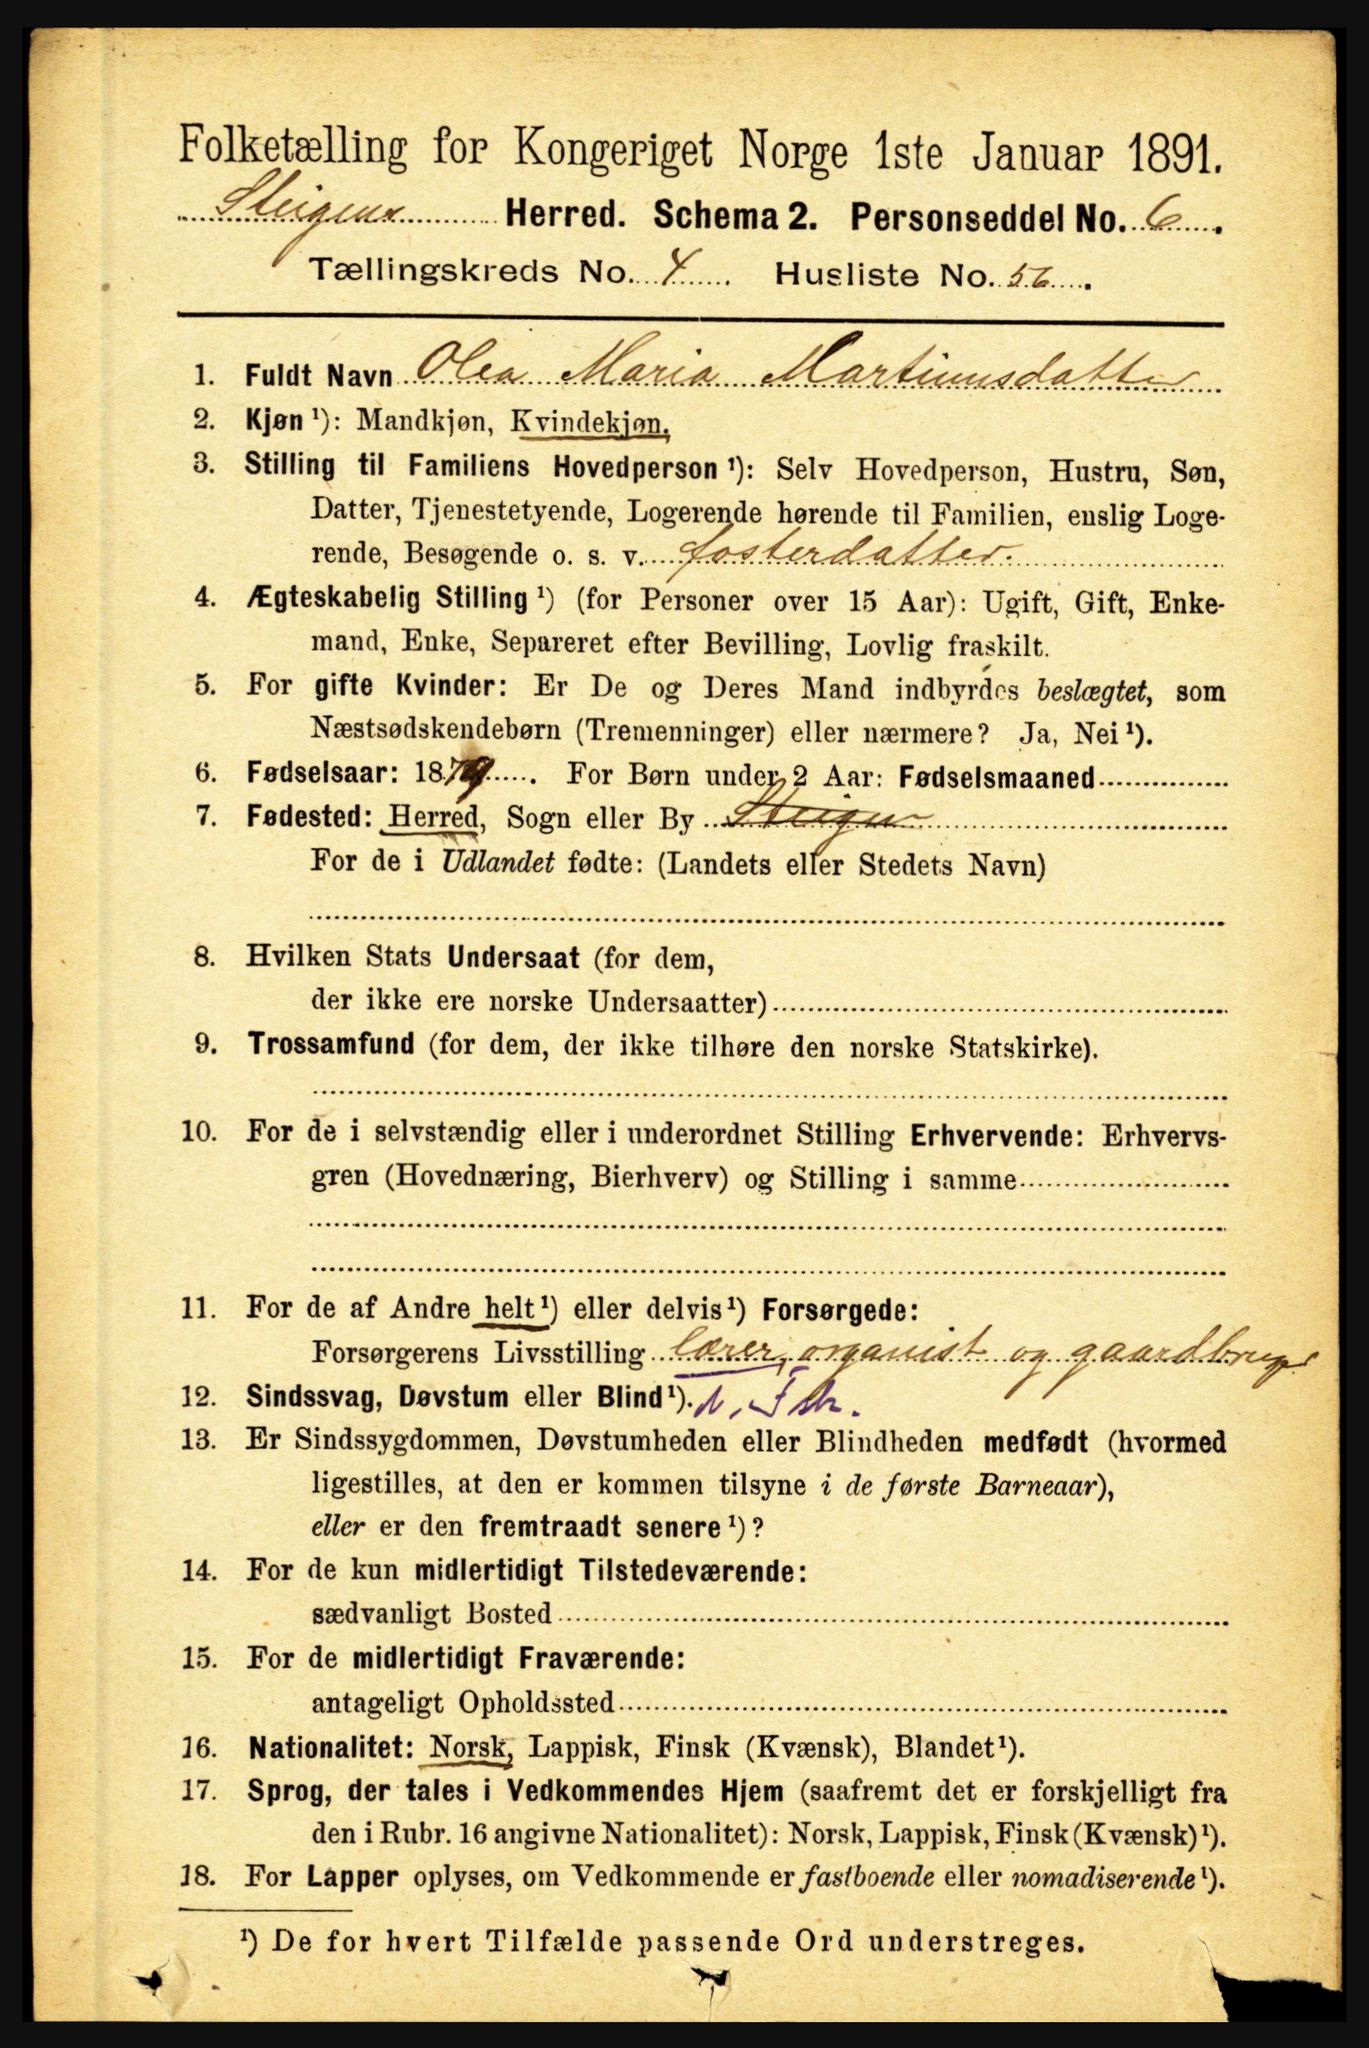 Folketælling for Kongeriget Norge 1ste Januar 1891.
Steigens Herred. Schema 2. Personseddel No. 6.
Tællingskreds No. 4. Husliste No. 56.
1. Fuldt Navn Olea Maria Martinusdatter
2. Kjøn ¹): Mandkjøn, Kvindekjøn.
3. Stilling til Familiens Hovedperson ¹): Selv Hovedperson, Hustru, Søn,
Datter, Tjenestetyende, Logerende hørende til Familien, enslig Loge-
rende, Besøgende o. s. v. fosterdatter.
4. Ægteskabelig Stilling ¹) (for Personer over 15 Aar): Ugift, Gift, Enke-
mand, Enke, Separeret efter Bevilling, Lovlig fraskilt.
5. For gifte Kvinder: Er De og Deres Mand indbyrdes beslægtet, som
Næstsødskendebørn (Tremenninger) eller nærmere? Ja, Nei ¹).
6. Fødselsaar: 1879. For Børn under 2 Aar: Fødselsmaaned
7. Fødested: Herred, Sogn eller By Steigen
For de i Udlandet fødte: (Landets eller Stedets Navn)
8. Hvilken Stats Undersaat (for dem,
der ikke ere norske Undersaatter)
9. Trossamfund (for dem, der ikke tilhøre den norske Statskirke).
10. For de i selvstændig eller i underordnet Stilling Erhvervende: Erhvervs-
gren (Hovednæring, Bierhverv) og Stilling i samme
11. For de af Andre helt ¹) eller delvis ¹) Forsørgede:
Forsørgerens Livsstilling lærer, organist og gaardbruger
12. Sindssvag, Døvstum eller Blind ¹).
13. Er Sindssygdommen, Døvstumheden eller Blindheden medfødt (hvormed
ligestilles, at den er kommen tilsyne i de første Barneaar),
eller er den fremtraadt senere ¹)?
14. For de kun midlertidigt Tilstedeværende:
sædvanligt Bosted
15. For de midlertidigt Fraværende:
antageligt Opholdssted
16. Nationalitet: Norsk, Lappisk, Finsk (Kvænsk), Blandet ¹).
17. Sprog, der tales i Vedkommendes Hjem (saafremt det er forskjelligt fra
den i Rubr. 16 angivne Nationalitet): Norsk, Lappisk, Finsk (Kvænsk) ¹).
18. For Lapper oplyses, om Vedkommende er fastboende eller nomadiserende ¹).
¹) De for hvert Tilfælde passende Ord understreges.